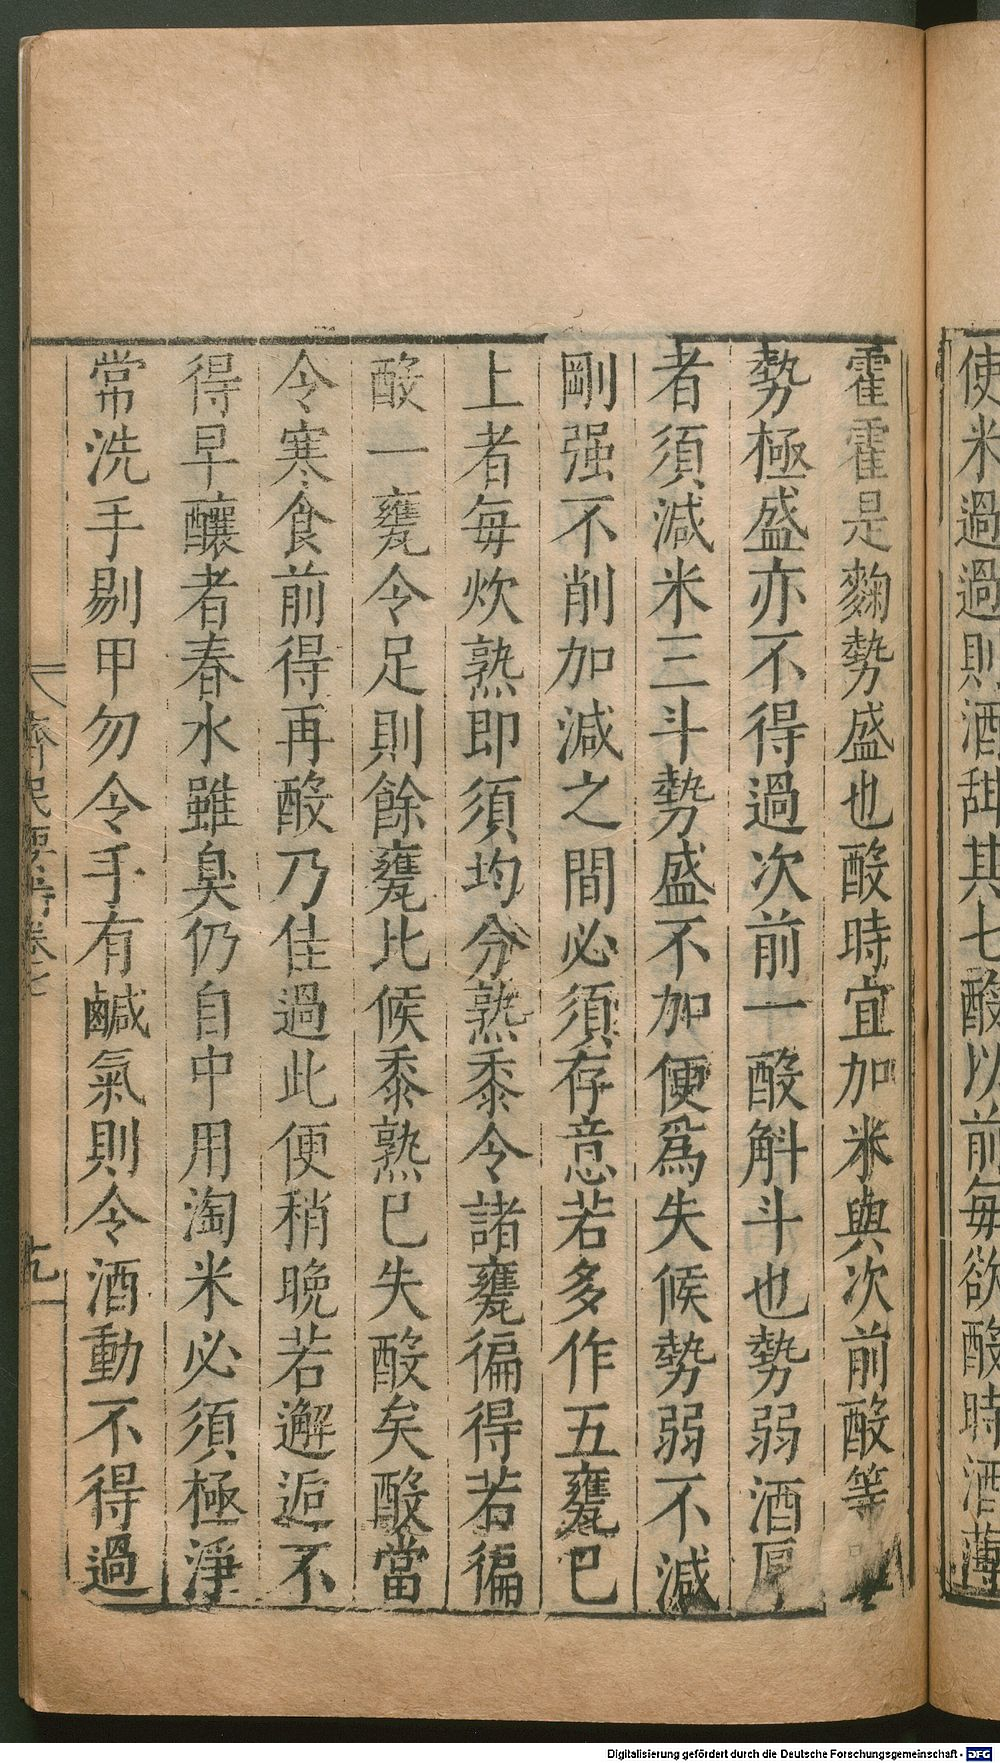 使米過過則酒甜其七酘以前每欲酘時酒薄
霍霍是麴勢盛也酘時宜加米與次前酘等
勢極盛亦不得過次前一酘斛斗也勢弱酒厚
者須減米三斗勢盛不加便爲失候勢弱不減
剛强不削加減之間必須存意若多作五甕已
上者每炊熟即須均分熟黍令諸甕徧得若徧
酘一甕令足則餘甕比候黍熟已失酘矣酘當
令寒食前得再酘乃佳過此便稍晚若邂逅不
得早釀者春水雖臭仍自中用淘米必須極淨
常洗手剔甲勿令手有鹹氣則令酒動不得過
齊民要術卷七
九
Digitalisierung gefördert durch die Deutsche Forschungsgemeinschaft - DFG